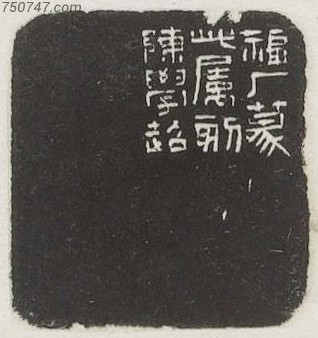 750747.com
福厂篆
此屬刻
陳學